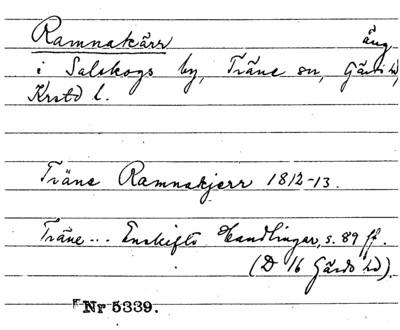 Ramnakärr äng
i Salskogs by, Träne sn, Gärds hd,
Krstd l.
Träne Ramnakjerr 1812-13.
Träne... Enskifts Handlingar, s. 89 ff.
(D 16 Gärds hd).
Nr 5339.